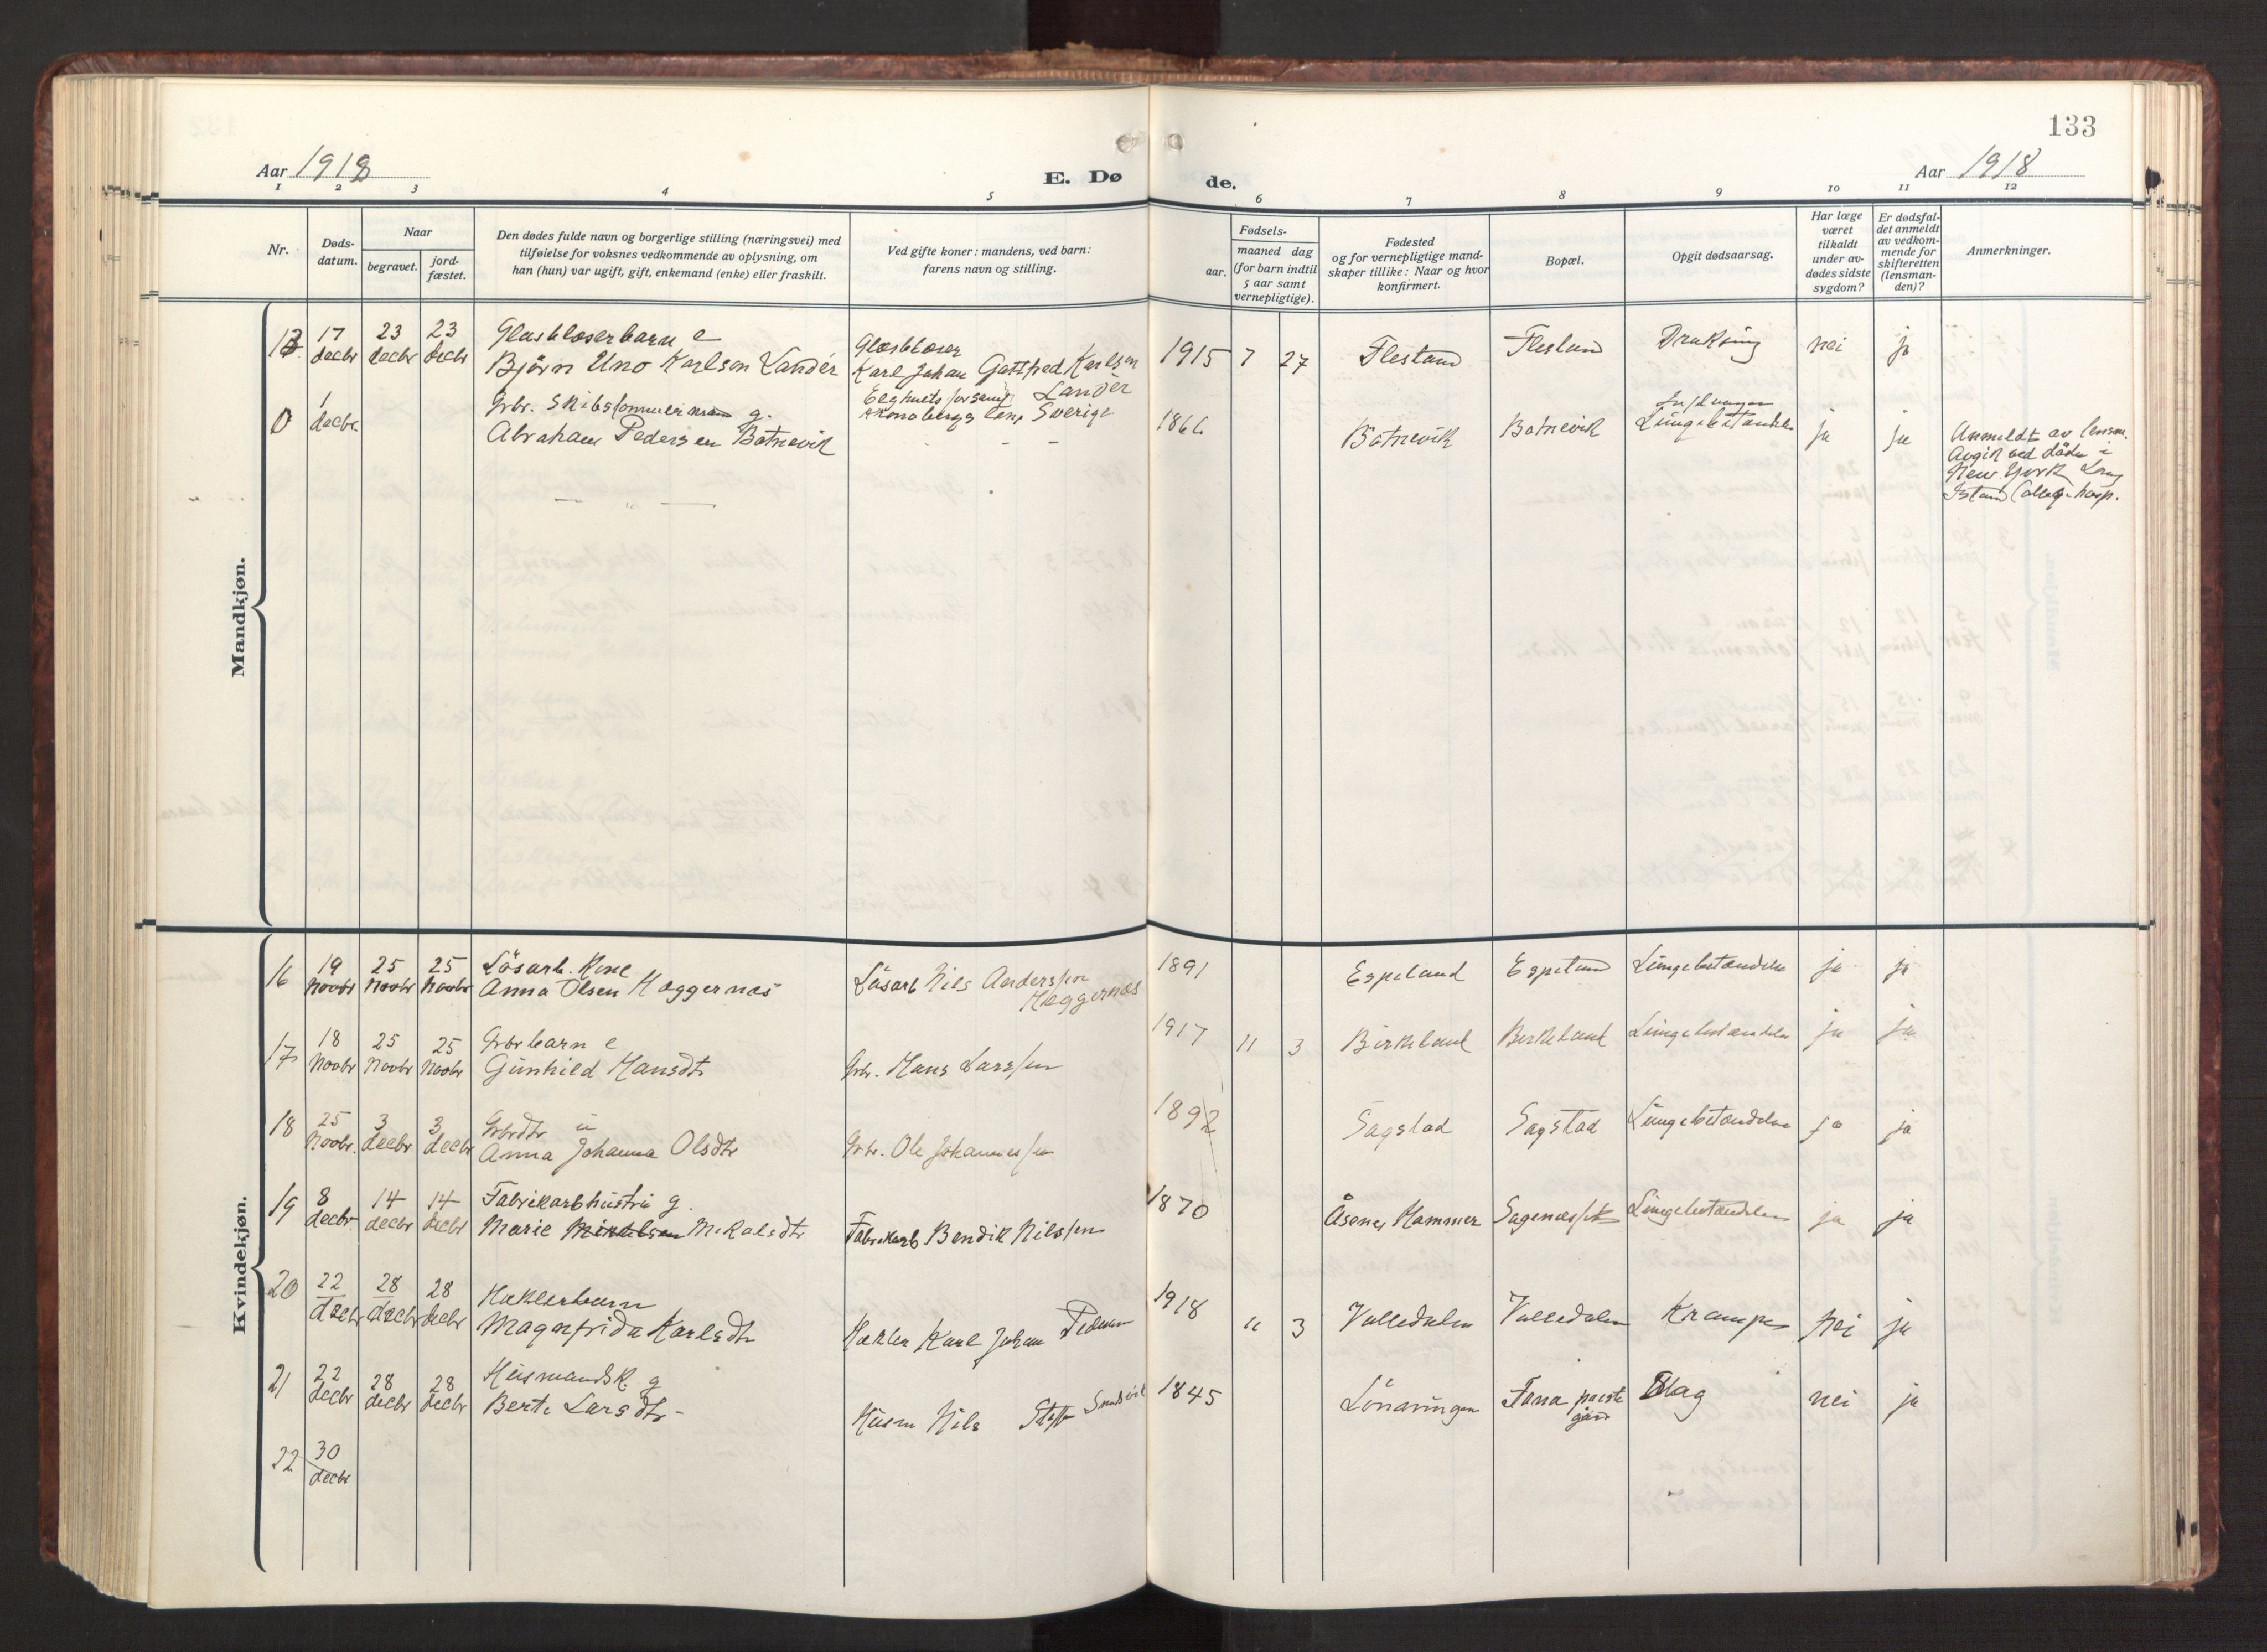 133
Aar 1918
E. Dø
de.
Aar 1918
1 2 3 4 5 6 7 8 9 10 11 12
Nr.
Døds-
datum.
Naar
begravet.
jord-
fæstet.
Den dødes fulde navn og borgerlige stilling (næringsvei) med
tilføielse for voksnes vedkommende av oplysning, om
han (hun) var ugift, gift, enkemand (enke) eller fraskilt.
Ved gifte koner: mandens, ved barn:
farens navn og stilling.
Fødsels-
aar.
maaned dag
(for barn indtil
5 aar samt
vernepligtige).
Fødested
og for vernepligtige mand-
skaper tillike: Naar og hvor
konfirmert.
Bopæl.
Opgit dødsaarsag.
Har læge
været
tilkaldt
under av-
dødes sidste
sygdom?
Er dødsfal-
det anmeldt
av vedkom-
mende for
skifteretten
(lensman-
den)?
Anmerkninger.
Mandkjøn.
13 17 decbr 23 decbr 23 decbr
Glasblæserbarn e
Björn Uno Karlson Landér
Glasblæser
Karl Johan Gottfred Karlsen
Landér
Kronobergs len, Sverige
1915 7 27 Flesland Flesland Drukning nei ja
0 1 decbr.
Grbr. g.
Abraham Pedersen Botnevik
- - -
1866 Botnevik Botnevik
Lungebetændelse ja ja
Anmeldt av lensm.
Avgik ved døden i
New York Long
Island College hosp.
Kvindekjøn.
16 19 Novbr 25 Novbr 25 Novbr
Lösarb. Kone
Anna Olsen Haggernæs
Lösarb Nils Anderssen
Haggernæs
1891 Espeland Espeland Lungebetændelse ja ja
17 18 Novbr 25 Novbr 25 Novbr
Grbrbarn e
Gunhild Hansdtr
Grbr. Hans Larssen
1917 11 3 Birkeland Birkeland Lungebetændelse ja ja
18 25 Novbr. 3 decbr 3 decbr
Grbrdtr u
Anna Johanna Olsdtr
Grbr. Ole Johannessen
1892 Sagstad Sagstad Lungebetændelse ja ja
19 8 decbr 14 decbr 14 decbr
Fabrikarbhustru g.
Marie Mikalsen Mikalsdtr
Fabrikarb Bendik Nilssen
1870 Åsenes Hammer Lungebetændelse ja ja
20 22 decbr 28 decbr 28 decbr
Hæklerbarn
Magnfrida Karlsdtr
Hækler Karl Johan Pedersen
1918 11 3 Valledalen Valledalen Krampe nei ja
21 22 decbr 28 decbr 28 decbr
Husmandsk. g
Berte Larsdtr
Husm Nils
1845 Lönningen Fana preste
gård Slag nei ja
22 30 decbr